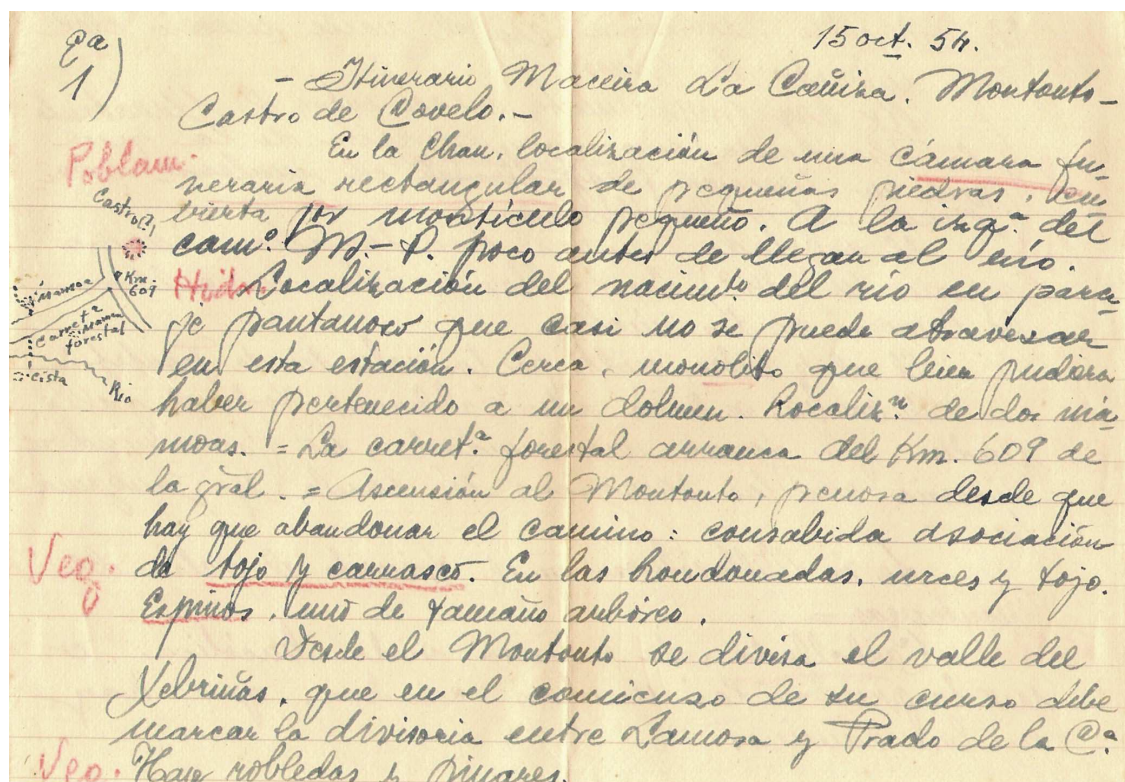 15 oct. 54.
1)
- Itinerario Maceira La Cañiza. Montouto-
Castro de Covelo.-
Poblam.
En la Chan, localización de una cámara fu-
neraria rectangular de pequeñas piedras, cu-
bierta por montículo pequeño. A la izqª. del
camº. M.-P. poco antes de llegar al río.
Castro
Km.
609
Mámoa
Carretª
forestal
cista
Río
Hidr.
Localización del nacimto. del río en para-
je pantanoso que casi no se puede atravesar
en esta estación. Cerca, monolito que bien pudiera
haber pertenecido a un dolmen. Localizn. de dos má-
moas. = La carretª. forestal arranca del Km. 609 de
la gral. = Ascensión al Montouto, penosa desde que
hay que abandonar el camino: consabida asociación
Veg.
de tojo y carrasco. En las hondonadas, urces y tojo.
Espiños, uno de tamaño arbóreo.
Desde el Montouto se divisa el valle del
Xebriñas, que en el comienzo de su curso debe
marcar la divisoria entre Lamosa y Prado de la Cª.
Veg.
Hay robledas y pinares.